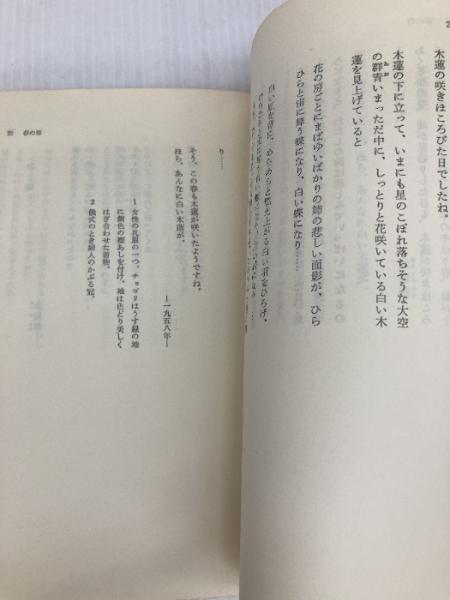 木蓮の咲きほころびた日でしたね。
木蓮の下に立って、いまにも星のこぼれ落ちそうな大空
の群青いまっただ中に、しっとりと花咲いている白い木
蓮を見上げていると
花の房ごとにまばゆいばかりの姉の悲しい面影が、ひら
ひらと宙に舞う蝶になり、白い蝶になり……
り……
そう、この春も木蓮が咲いたようですね。
ほら、あんなに白い木蓮が。
―一九五八年―
1 女性の礼服の一つ。チョゴリはうす緑の地
に銀色の襟あしを付け、袖は色どり美しく
はぎ合わせた着物。
2 儀式のとき婦人のかぶる冠。